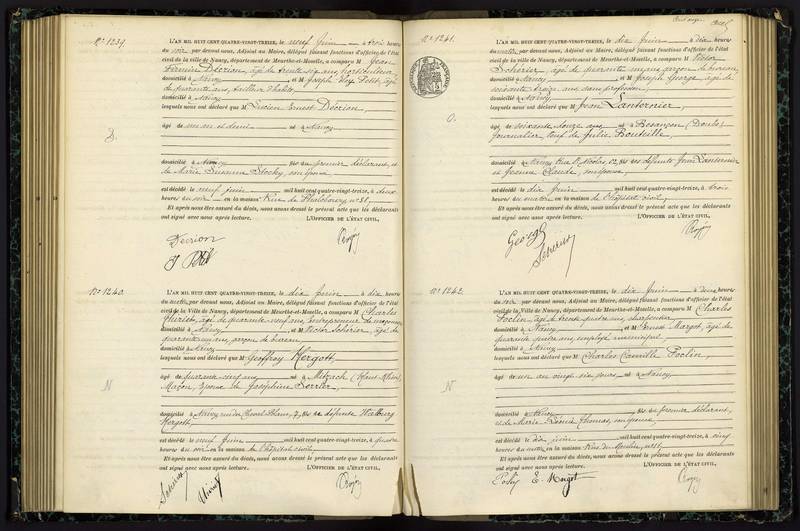 N° 1239.
L'AN MIL HUIT CENT QUATRE-VINGT-TREIZE, le neuf Juin à trois heures
du soir, par devant nous, Adjoint au Maire, délégué faisant fonctions d'officier de l'état
civil de la ville de Nancy, département de Meurthe-et-Moselle, a comparu M Jean
Décrion, âgé de trente six ans, horticulteur,
domicilié à Nancy, et M Joseph Petit, âgé
de quarante ans, tailleur d'habits,
domicilié à Nancy
lesquels nous ont déclaré que M Lucien Ernest Décrion,
âgé de un an et demi né à Nancy
domicilié à Nancy fils du premier déclarant, et
de Marie Suzanne Stocky, son épouse
est décédé le neuf juin mil huit cent quatre-vingt-treize, à deux
heures du soir en la maison Rue de Phalsbourg n°
Et après nous être assuré du décès, nous avons dressé le présent acte que les déclarants
ont signé avec nous après lecture. L'OFFICIER DE L'ÉTAT CIVIL,
Decrion
N° 1240.
L'AN MIL HUIT CENT QUATRE-VINGT-TREIZE, le dix Juin à dix heures
du matin, par devant nous, Adjoint au Maire, délégué faisant fonctions d'officier de l'état
civil de la Ville de Nancy, département de Meurthe-et-Moselle, a comparu M Charles
âgé de quarante-neuf ans, entrepreneur de
domicilié à Nancy, et M Victor Schérier, âgé de
quarante cinq ans, garçon de bureau,
domicilié à Nancy
lesquels nous ont déclaré que M Geoffroy Hergott,
âgé de quarante cinq ans né à
Maçon, époux de Joséphine
domicilié à Nancy rue du Cheval Blanc, 7, fils de défunte Walburg
Hergott,
est décédé le neuf Juin mil huit cent quatre-vingt-treize, à quatre
heures du soir en la maison de l'hôpital civil
Et après nous être assuré du décès, nous avons dressé le présent acte que les déclarants
ont signé avec nous après lecture. L'OFFICIER DE L'ÉTAT CIVIL,
N° 1241.
L'AN MIL HUIT CENT QUATRE-VINGT-TREIZE, le dix Juin à dix heures
du matin, par devant nous, Adjoint au Maire, délégué faisant fonctions d'officier de l'état
civil de la ville de Nancy, département de Meurthe-et-Moselle, a comparu M Victor
Schérier, âgé de quarante cinq ans, garçon de bureau,
domicilié à Nancy, et M Joseph George, âgé de
soixante treize ans, sans profession,
domicilié à Nancy
lesquels nous ont déclaré que M Jean Lanternier,
âgé de soixante douze ans né à Besançon (Doubs)
journalier, veuf de Julie Bouteille,
domicilié à Nancy Rue St Nicolas, fils des défunts Jean Lanternier
et Jeanne Claude, son épouse,
est décédé le dix Juin mil huit cent quatre-vingt-treize, à trois
heures du matin en la maison de l'hôpital civil,
Et après nous être assuré du décès, nous avons dressé le présent acte que les déclarants
ont signé avec nous après lecture. L'OFFICIER DE L'ÉTAT CIVIL,
George
N° 1242.
L'AN MIL HUIT CENT QUATRE-VINGT-TREIZE, le dix Juin à deux heures
du soir, par devant nous, Adjoint au Maire, délégué faisant fonctions d'officier de l'état
civil de la Ville de Nancy, département de Meurthe-et-Moselle, a comparu M Charles
Poclin, âgé de trente quatre ans, charpentier,
domicilié à Nancy, et M Ernest Margot, âgé de
quarante quatre ans, employé municipal
domicilié à Nancy
lesquels nous ont déclaré que M Charles Camille Poclin,
âgé de un an onze six jours né à Nancy,
domicilié à Nancy fils du premier déclarant,
et de Marie Thomas, son épouse
est décédé le dix juin mil huit cent quatre-vingt-treize, à cinq
heures du matin en la maison Rue du Moulin,
Et après nous être assuré du décès, nous avons dressé le présent acte que les déclarants
ont signé avec nous après lecture. L'OFFICIER DE L'ÉTAT CIVIL,
E. Margot